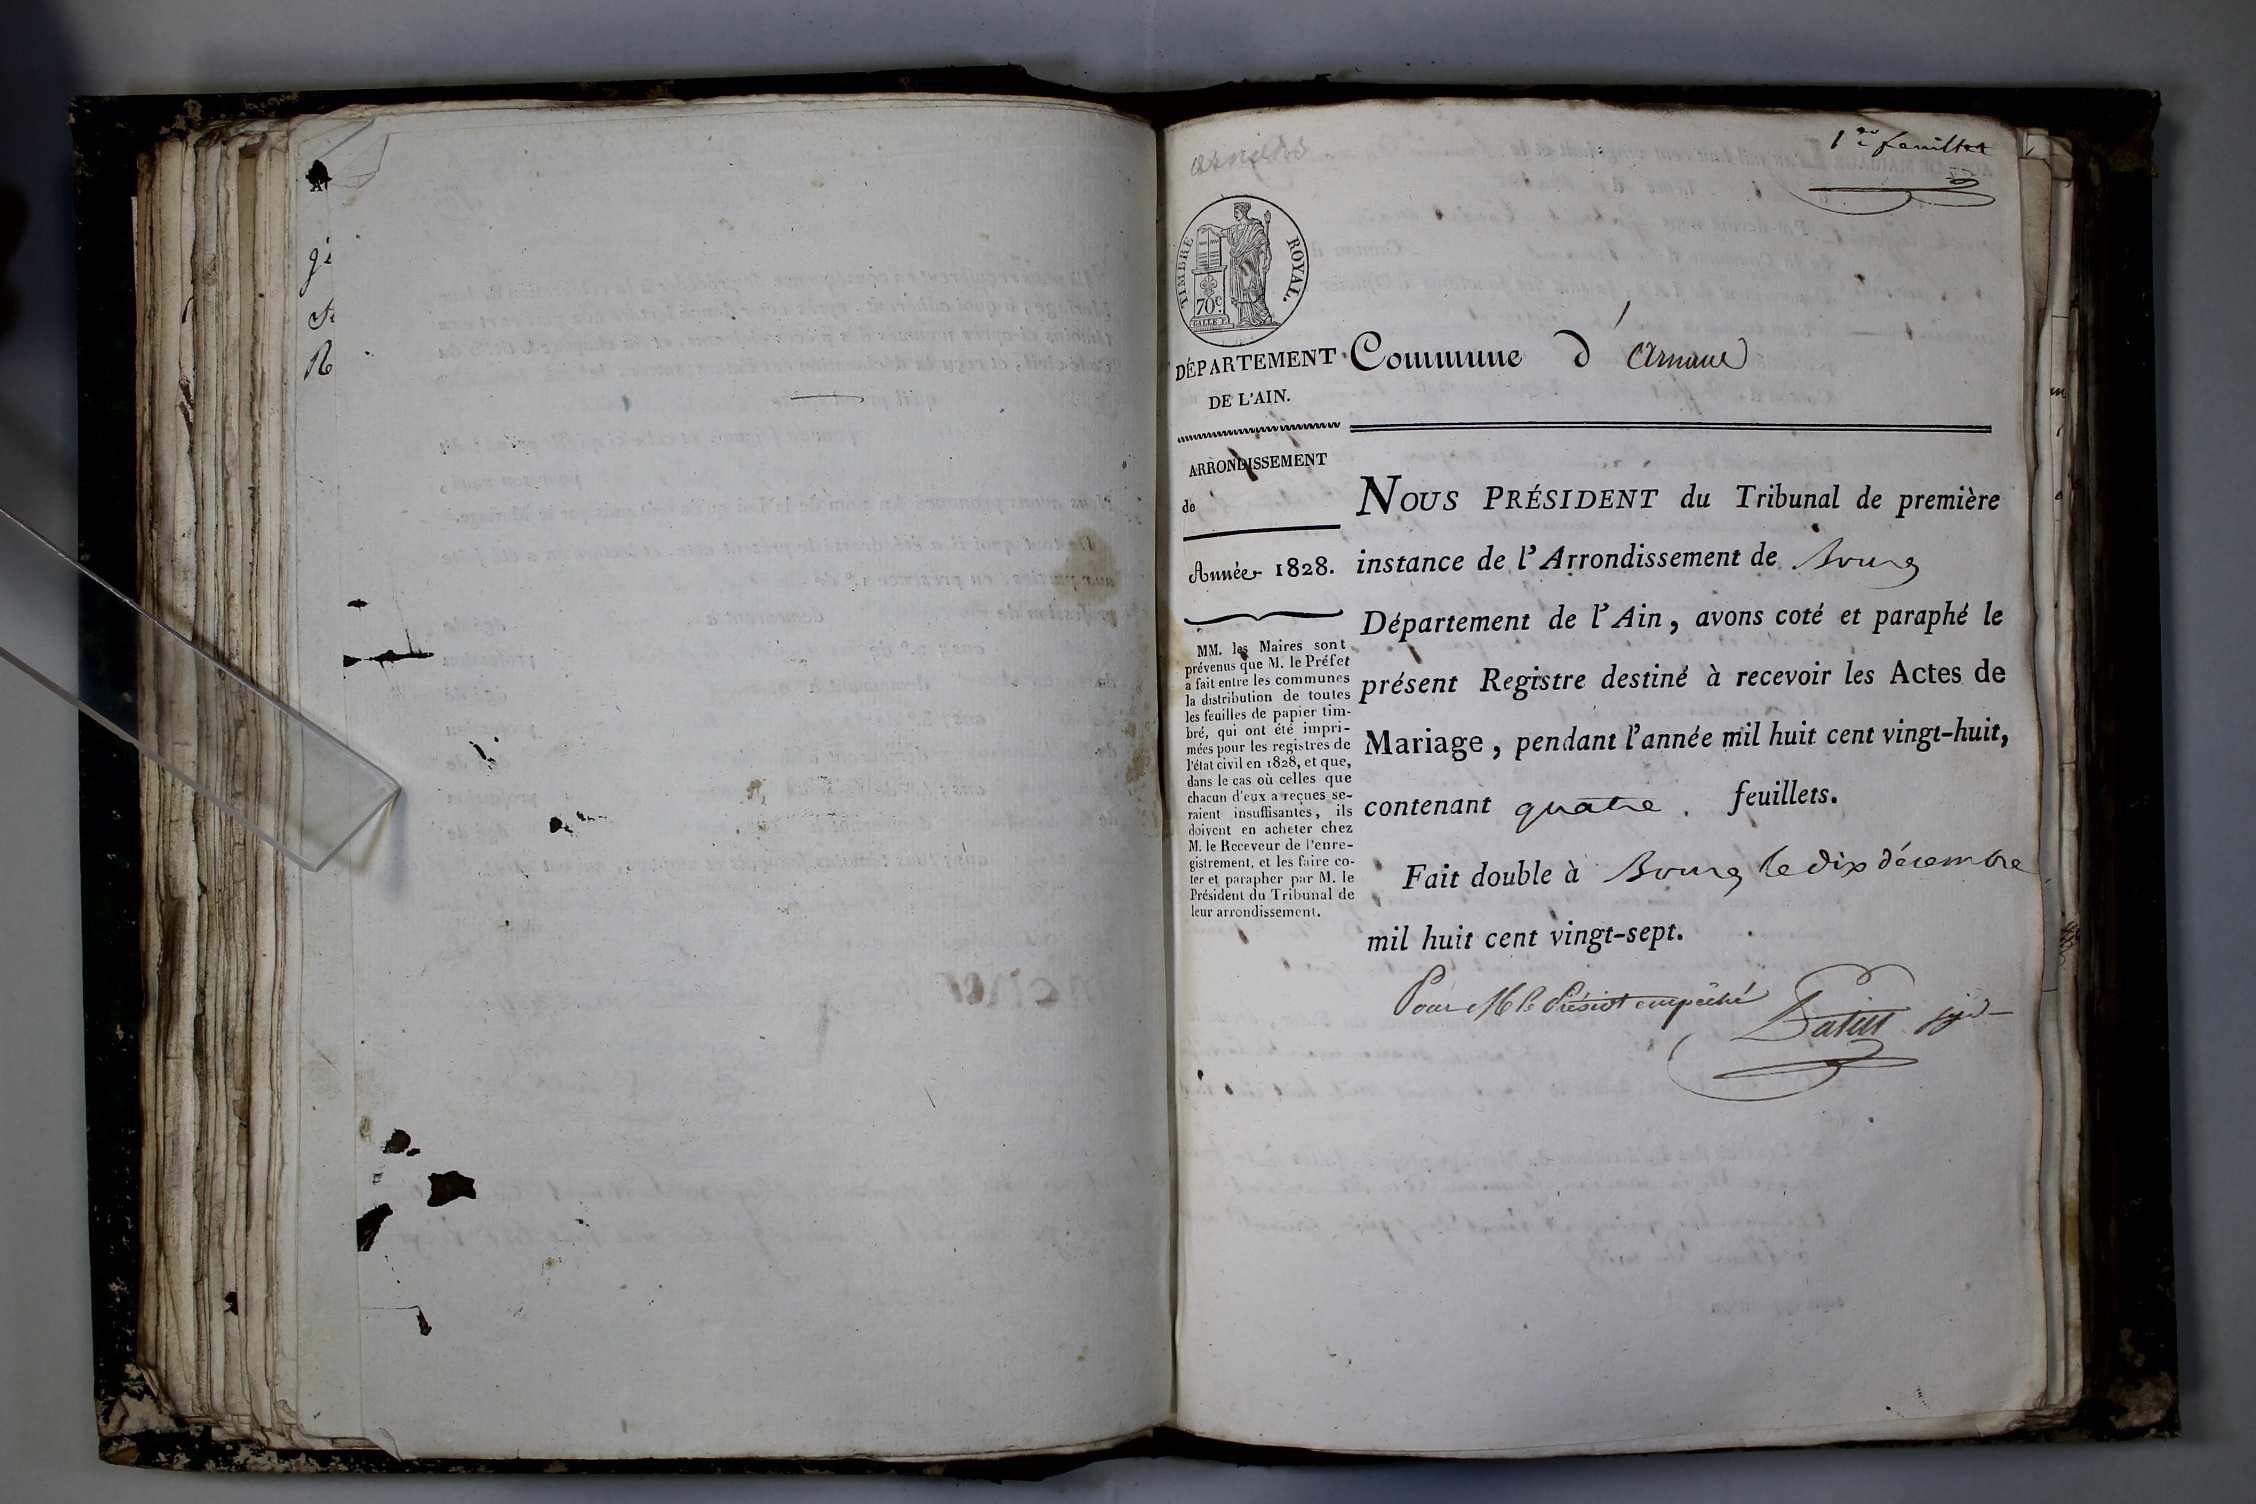 1er feuillet
TIMBRE ROYAL.
70c.
DÉPARTEMENT
DE L'AIN.
ARRONDISSEMENT
de
Année 1828.
MM. les Maires sont
prévenus que M. le Préfet
a fait entre les communes
la distribution de toutes
les feuilles de papier tim-
bré, qui ont été impri-
mées pour les registres de
l'état civil en 1828, et que,
dans le cas où celles que
chacun d'eux a reçues se-
raient insuffisantes, ils
doivent en acheter chez
M. le Receveur de l'enre-
gistrement, et les faire co-
ter et parapher par M. le
Président du Tribunal de
leur arrondissement.
Commune d'
NOUS PRÉSIDENT du Tribunal de première
instance de l'Arrondissement de Bourg
Département de l'Ain, avons coté et paraphé le
présent Registre destiné à recevoir les Actes de
Mariage, pendant l'année mil huit cent vingt-huit,
contenant quatre feuillets.
Fait double à Bourg le dix décembre
mil huit cent vingt-sept.
Pour M. le Présidt empêché